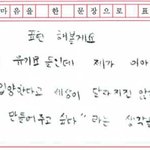 마음을 한 문장으로 표
표현 해볼게요
유기묘 들인데 제가 이
입양한다고 세상이 달라지진 않
만들어주고 싶다" 라는 생각